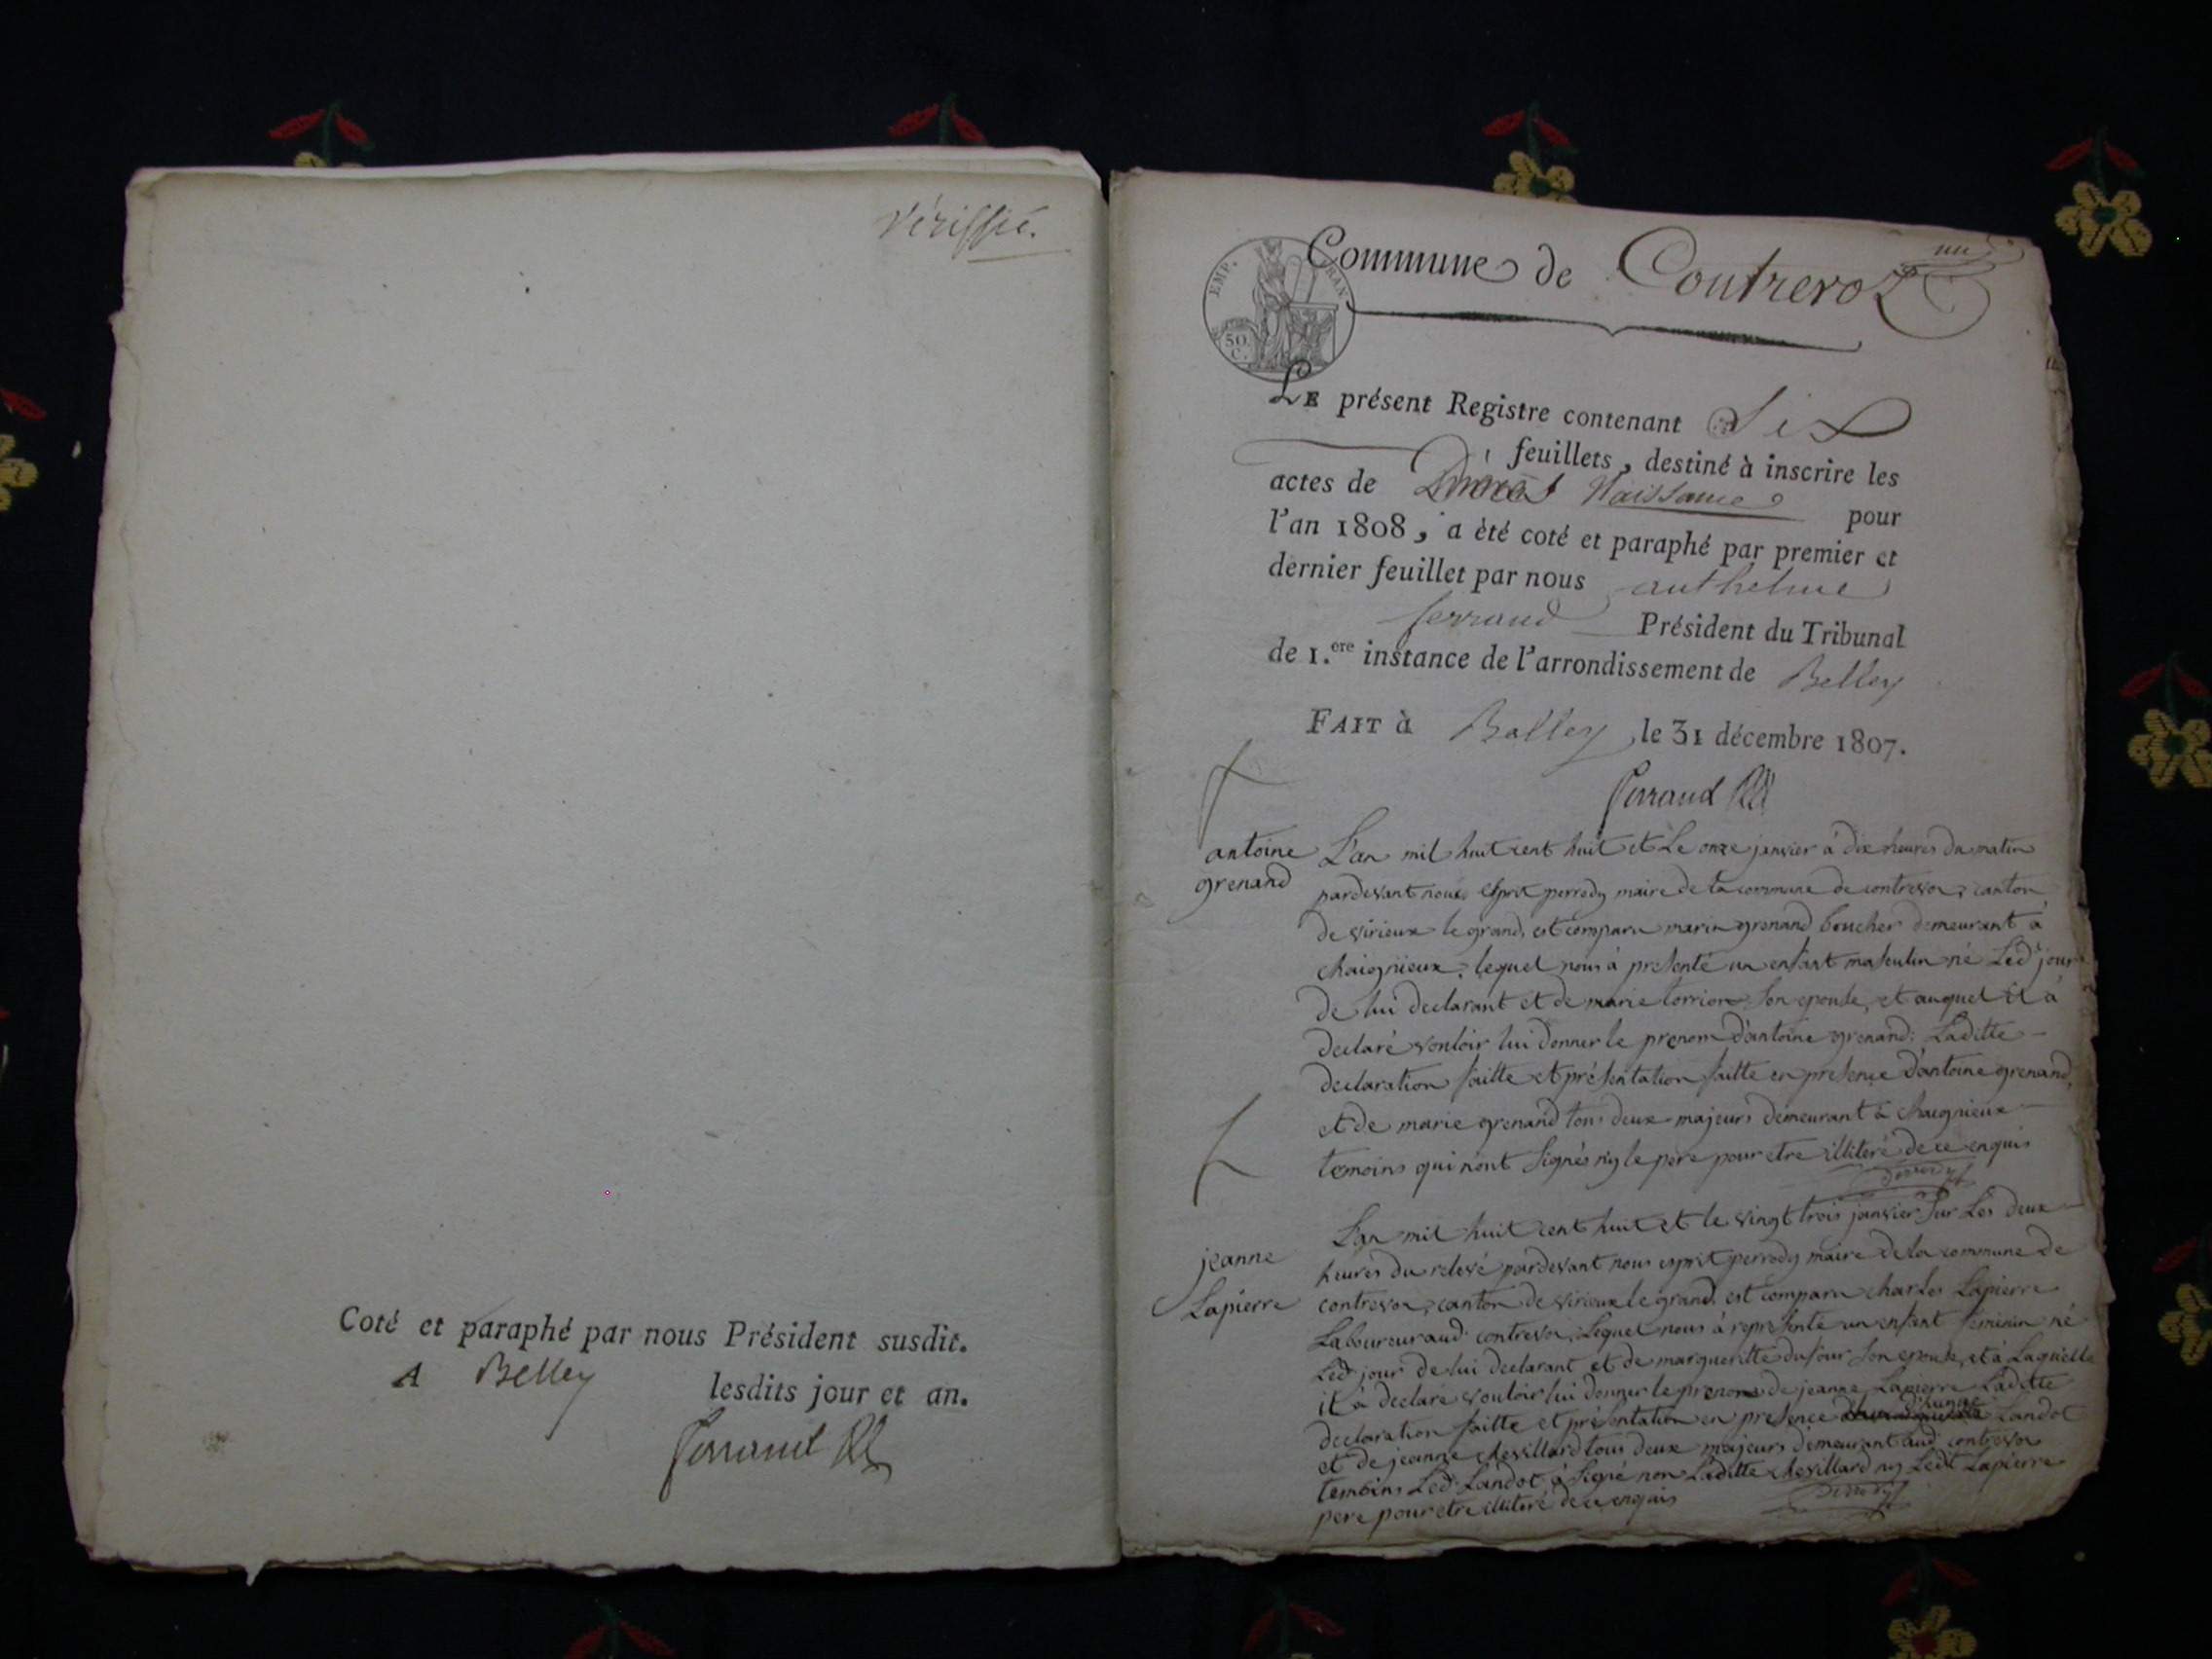 vériffié.
Coté et paraphé par nous Président susdit.
A Belley lesdits jour et an.
Ferrand
un
Commune de Contrevoz
EMP. FRAN
50.
C.
LE présent Registre contenant Six
feuillets, destiné à inscrire les
actes de Naissance pour
l'an 1808, a été coté et paraphé par premier et
dernier feuillet par nous anthelme
ferrand Président du Tribunal
de 1.ere instance de l'arrondissement de Belley
FAIT à Belley, le 31 décembre 1807.
Ferrand
antoine
grenand
L'an mil huit cent huit et Le onze janvier à dix heures du matin
pardevant nous esprit perrody maire de la commune de contrevoz, canton
de virieux le grand, est comparu marin grenand boucher demeurant à
chaignieux, lequel nous à presenté un enfant masculin né Led. jour
de lui declarant et de marie torrion son epouse, et auquel il à
declaré vouloir lui donner le prenom d'antoine grenand. Laditte
declaration faitte et présentation faitte en presence d'antoine grenand,
et de marie grenand tous deux majeurs demeurant à chaignieux
temoins qui n'ont signés ny le père pour etre illiteré de ce enquis
perrody
jeanne
Lapierre
L'an mil huit cent huit et le vingt trois janvier sur Les deux
heures du relevé pardevant nous esprit perrody maire de la commune de
contrevoz, canton de virieux le grand, est comparu charles Lapierre
Laboureur aud. contrevoz, Lequel nous à representé un enfant feminin né
Led. jour de lui declarant et de margueritte dufour son epouse, et à Laquelle
il à declaré vouloir lui donner le prenom de jeanne Lapierre Laditte
declaration faitte et présentation en presence Landot
et de jeanne chevillard tous deux majeurs demeurant aud. contrevoz
temoins Led. Landot à signé non Laditte chevillard ny Ledit Lapierre
pere pour etre illiteré de ce enquis
perrody